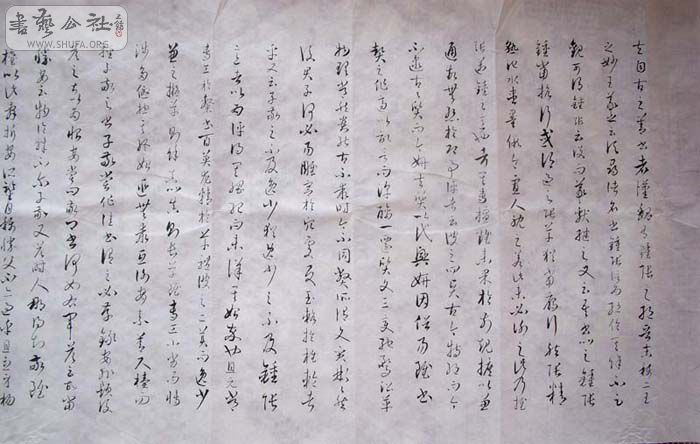 書藝公社
WWW.SHUFA.ORG
夫自古之善書者漢魏有鍾張之絕晉末稱二王
之妙王羲之云頃尋諸名書鍾張信為絕倫其餘不足
觀可謂鍾張云沒而羲獻繼之又云吾書比之鍾張
鍾當抗行或謂過之張草猶當雁行然張精
熟池水盡墨假令寡人耽之若此未必謝之此乃推
張邁鍾之意也考其專擅雖未果於前規摭以兼
通故無慚於即事評者云彼之四賢古今特絕而今
不逮古古質而今妍夫質以代興妍因俗易雖書
契之作適以記言而淳醨一遷質文三變馳騖沿革
物理常然貴能古不乖時今不同弊所謂文質彬彬然
後君子何必易雕宮於穴處反玉輅於椎輪者
乎又云子敬之不及逸少猶逸少之不及鍾張
意者以為評得其綱紀而未詳其始卒也且元常
專工於隸書伯英尤精於草體彼之二美而逸少
兼之擬草則餘真比真則長草雖專工小劣而博
涉多優總其終始匪無乖互謝安素善尺牘而
輕子敬之書子敬嘗作佳書與之謂必存錄安輒題後
答之甚以為恨安嘗問敬卿書何如右軍答云故當
勝安云物論殊不爾子敬又答時人那得知敬雖
權以此辭折安所鑒自稱勝父不亦過乎且立身揚